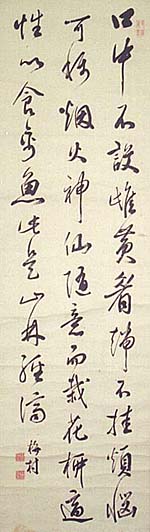 口中不設雌黄眉端不挂煩惱
可称烟火神仙隨意而栽花柳適
性以養禽魚此是山林經濟
梅村